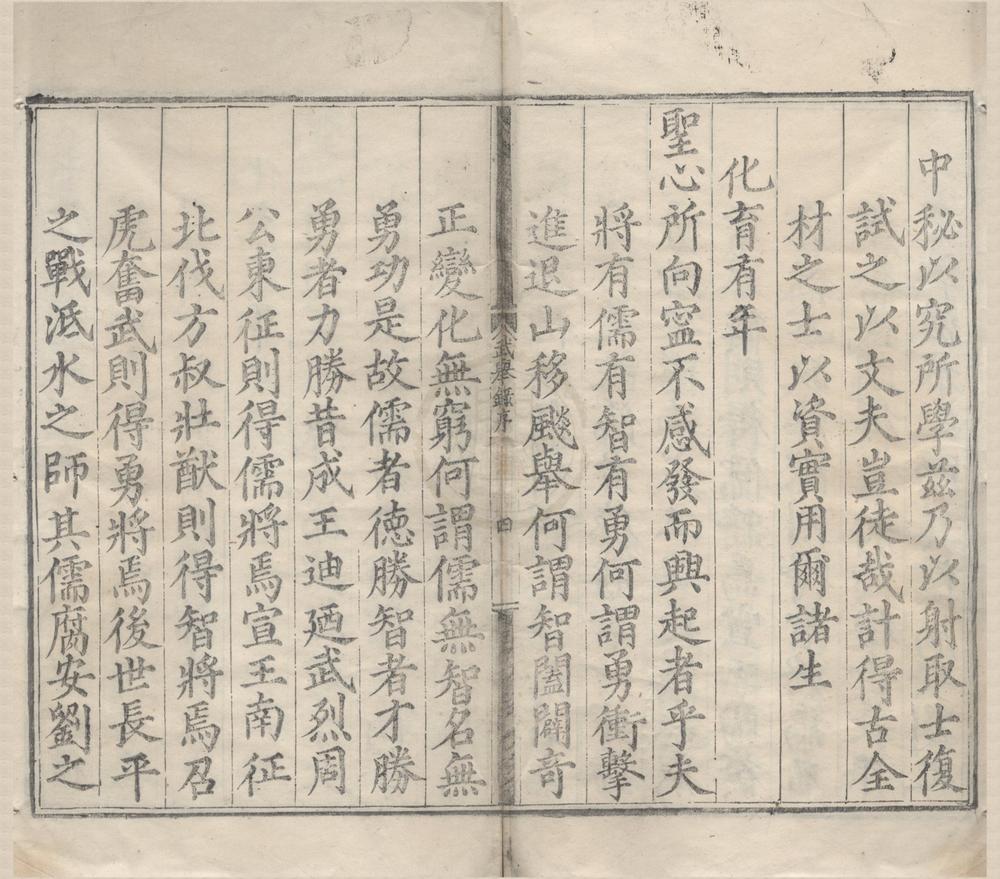 中秘以究所學茲乃以射取士復
試之以文夫豈徒哉計得古全
材之士以資實用爾諸生
化育有年
聖心所向寧不感發而興起者乎夫
將有儒有智有勇何謂勇衝擊
進退山移颷舉何謂智闔闢奇
武舉錄序
四
正變化無窮何謂儒無智名無
勇功是故儒者德勝智者才勝
勇者力勝昔成王迪廼武烈周
公東征則得儒將焉宣王南征
北伐方叔壯猷則得智將焉召
虎奮武則得勇將焉後世長平
之戰泜水之師其儒腐安劉之